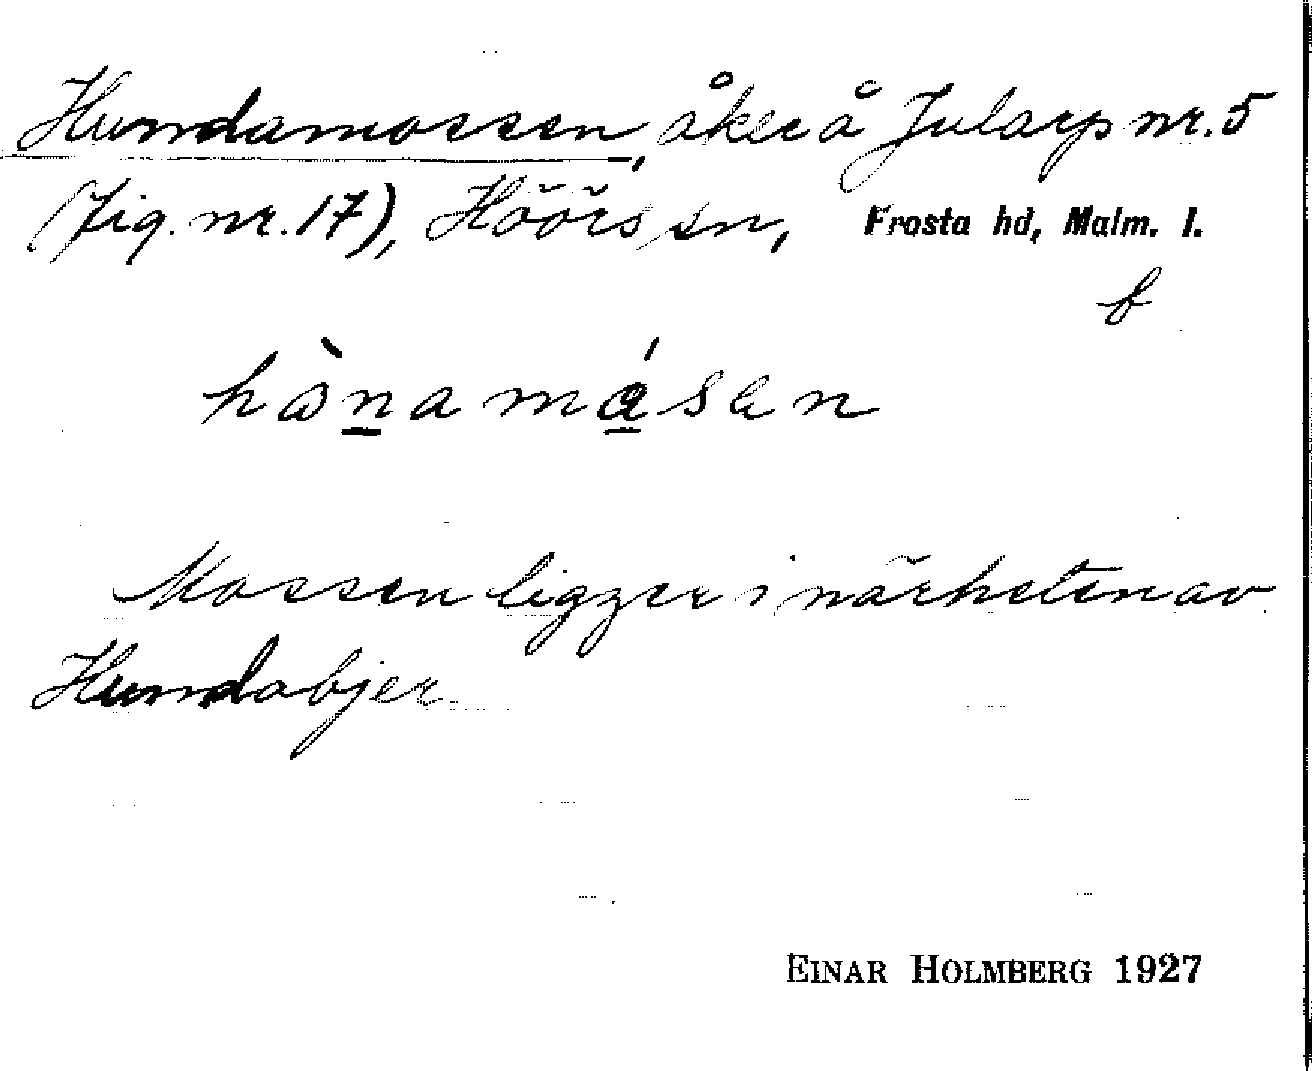 Hundamossen, åker å Jularp nr. 5
(Fig. nr. 17), Höörs sn, Frosta hd, Malm. l.
b
hànamásen
Mossen ligger i närheten av
Hundabjer.
EINAR HOLMBERG 1927